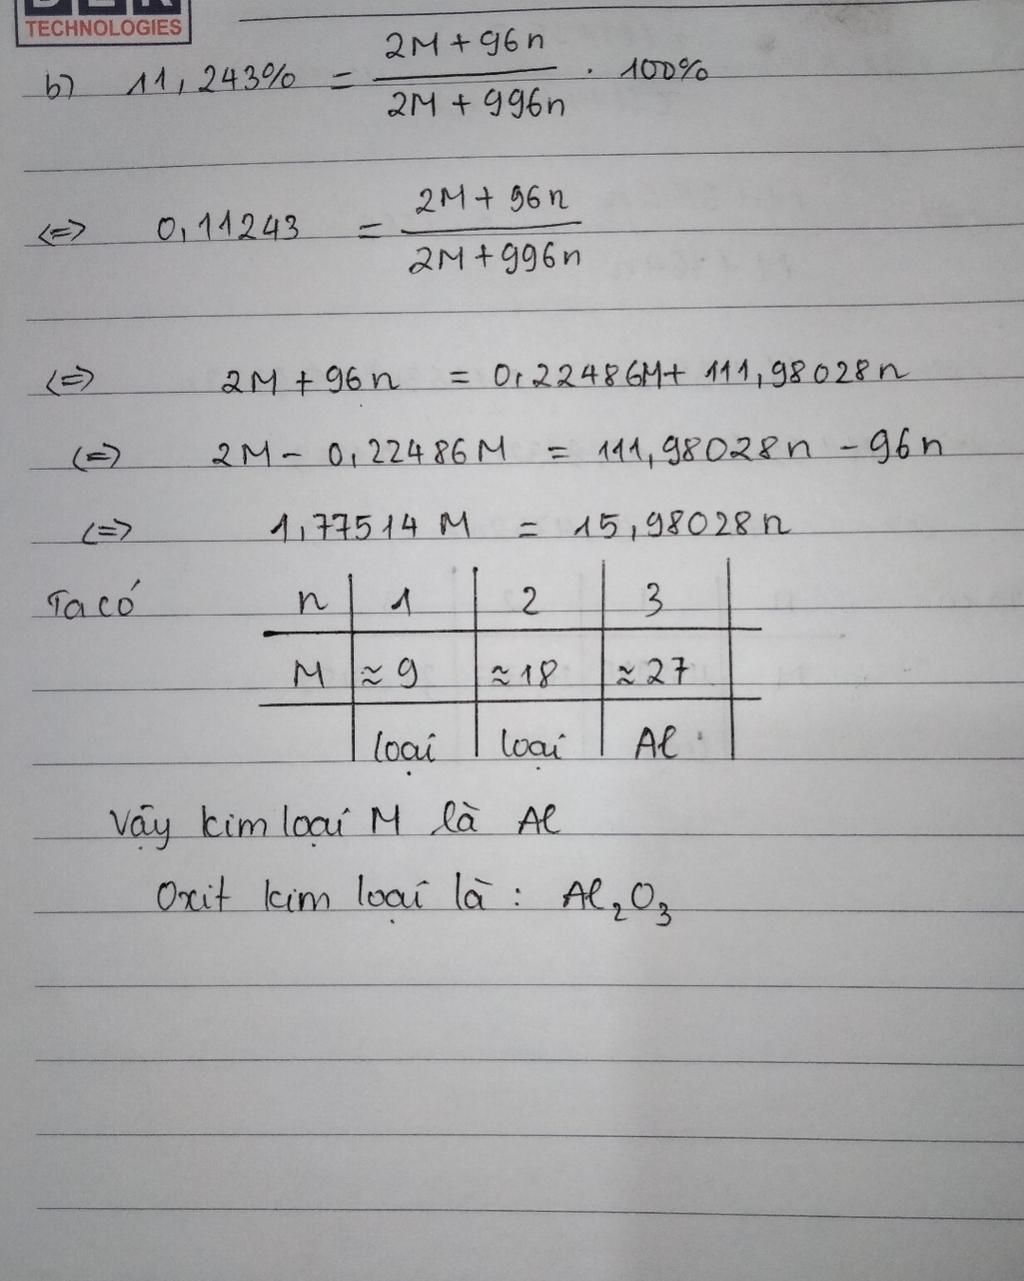 TECHNOLOGIES
b) 11,243% = (2M + 96n)/(2M + 996n) . 100%
<=> 0,11243 = (2M + 96n)/(2M + 996n)
<=> 2M + 96n = 0,22486M + 111,98028n
<=> 2M - 0,22486M = 111,98028n - 96n
<=> 1,77514 M = 15,98028n
Ta có n | 1 | 2 | 3
M | ≈ 9 | ≈ 18 | ≈ 27
loại | loại | Al
Vậy kim loại M là Al
Oxit kim loại là : Al₂O₃